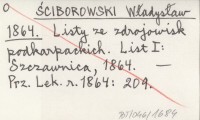 O ŚCIBOROWSKI Władysław
1864. Listy ze zdrojowisk
podkarpackich. List I:
Szczawnica, 1864. —
Prz. Lek. r. 1864: 204.